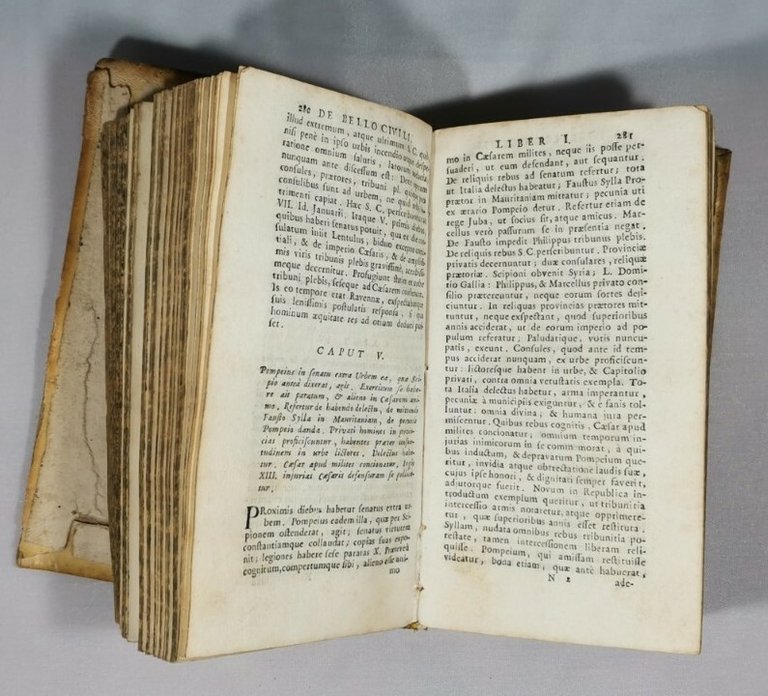 280 DE BELLO CIVILI,
illud extremum, atque ultimum S. C. quo
nisi penè in ipso urbis incendio atque despe-
ratione omnium salutis, latorum audacia
nunquam ante discessum est: Dent operam
consules, prætores, tribuni pl. quique pro
consulibus sunt ad urbem, ne quid
trimenti capiat. Hæc S. C. perscribuntur
VII. Id. Januarii. Itaque V. primis diebus,
quibus haberi senatus potuit, qua ex die con-
sulatum iniit Lentulus, biduo excepto comi-
tiali, & de imperio Cæsaris, & de amplissi-
mis viris tribunis plebis gravissimè, acerbissi-
meque decernitur. Profugiunt statim ex urbe
tribuni plebis, seseque ad Cæsarem conferunt.
Is eo tempore erat Ravennæ, exspectabatque
suis lenissimis postulatis responsa, si qua
hominum æquitate res ad otium deduci pos-
set.
CAPUT V.
Pompeius in senatu extra Urbem ea, quæ Sci-
pio anteà dixerat, agit. Exercitum se habe-
re ait paratum, & alieno in Cæsarem ani-
mo. Refertur de habendo delectu, de mittendo
Fausto Sylla in Mauritaniam, de pecunia
Pompeio danda. Privati homines in provin-
cias proficiscuntur, habentes præter consue-
tudinem in urbe lictores. Delectus habe-
tur. Cæsar apud milites concionatur, legio
XIII. injurias Cæsaris defensuram se pollice-
tur.
PRoximis diebus habetur senatus extra ur-
bem. Pompeius eadem illa, quæ per Sci-
pionem ostenderat, agit; senatus virtutem
constantiamque collaudat; copias suas expo-
nit; legiones habere sese paratas X. Præterea
cognitum, compertumque sibi, alieno esse ani-
mo
LIBER I. 281
mo in Cæsarem milites, neque iis posse per-
suaderi, ut eum defendant, aut sequantur.
De reliquis rebus ad senatum refertur; tota
ut Italia delectus habeatur; Faustus Sylla Pro-
prætor in Mauritaniam mittatur; pecunia uti
ex ærario Pompeio detur. Refertur etiam de
rege Juba, ut socius sit, atque amicus. Mar-
cellus verò passurum se in præsentia negat.
De Fausto impedit Philippus tribunus plebis.
De reliquis rebus S. C. perscribuntur. Provinciæ
privatis decernuntur; duæ consulares, reliquæ
prætoriæ. Scipioni obvenit Syria; L. Domi-
tio Gallia: Philippus, & Marcellus privato con-
silio prætereuntur, neque eorum sortes deji-
ciuntur. In reliquas provincias prætores mit-
tuntur, neque exspectant, quod superioribus
annis acciderat, ut de eorum imperio ad po-
pulum referatur; Paludatique, votis nuncu-
patis, exeunt. Consules, quod ante id tem-
pus acciderat nunquam, ex urbe proficiscun-
tur: lictoresque habent in urbe, & Capitolio
privati, contra omnia vetustatis exempla. To-
ta Italia delectus habetur, arma imperantur,
pecuniæ à municipiis exiguntur, & e fanis tol-
luntur: omnia divina, & humana jura per-
miscentur. Quibus rebus cognitis. Cæsar apud
milites concionatur, omnium temporum in-
jurias inimicorum in se commorat, à qui-
bus inductum, & depravatum Pompeium que-
ritur, invidia atque obtrectatione laudis suæ,
cujus ipse honori, & dignitati semper faverit,
adjutorque fuerit. Novum in Republica in-
troductum exemplum queritur, ut tribunitia
intercessio armis notaretur, atque opprimere-
tur, quæ superioribus annis esset restituta.
Syllam, nudata omnibus rebus tribunitia po-
testate, tamen intercessionem liberam reli-
quisse. Pompeium, qui amissam restituisse
videatur, bona etiam, quæ antè habuerat,
N 2 ade-